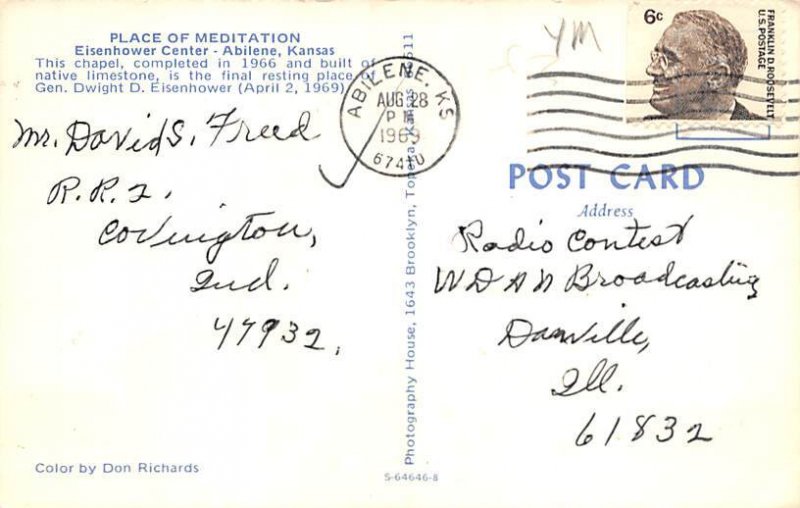 PLACE OF MEDITATION
Eisenhower Center - Abilene, Kansas
This chapel, completed in 1966 and built of
native limestone, is the final resting place of
Gen. Dwight D. Eisenhower (April 2, 1969)
Mr. David S. Freed
R.R. 2.
Covington,
Ind.
47932.
Color by Don Richards
Photography House, 1643 Brooklyn, Topeka, Kansas 66611
S-64646-8
YM
ABILENE, KS
AUG 28
PM
1969
67410
6c
FRANKLIN D. ROOSEVELT
U.S. POSTAGE
POST CARD
Address
Radio Contest
WDAN Broadcasting
Danville,
Ill.
61832